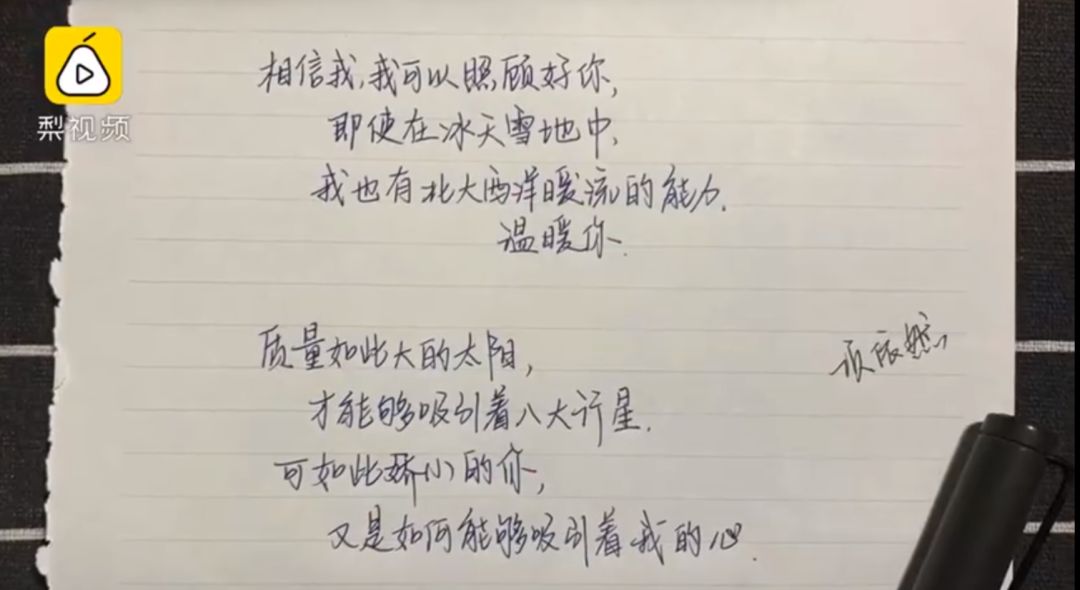 梨视频
相信我,我可以照顾好你,
即使在冰天雪地中,
我也有北大西洋暖流的能力.
温暖你.
质量如此大的太阳,
才能够吸引着八大行星.
可如此娇小的你,
又是如何能够吸引着我的心.